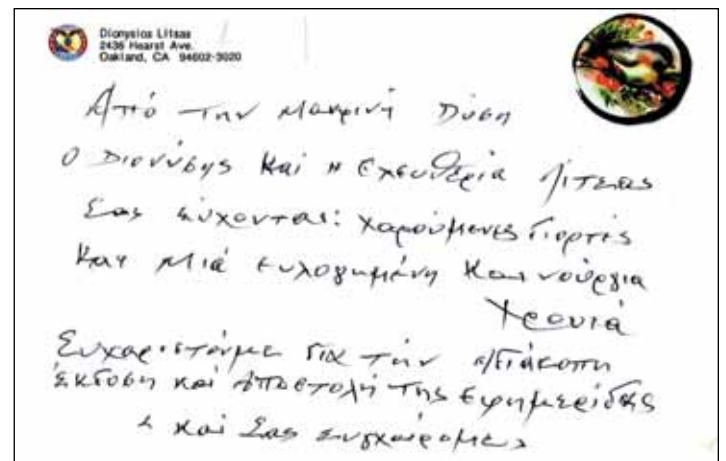 Dionysios Litsas
2436 Hearst Ave.
Oakland, CA 94602-3020
Από την μακρινή Δύση
Ο Διονύσης Και η Ελευθερία Λίτσας
Σας εύχονται: Χαρούμενες Γιορτές
Και Μιά ευλογημένη Και νούργια
Χρονιά
Ευχαριστούμε για την αδιάκοπη
έκδοση και Αποστολή της εφημερίδας
και Σας συγχαίρομε